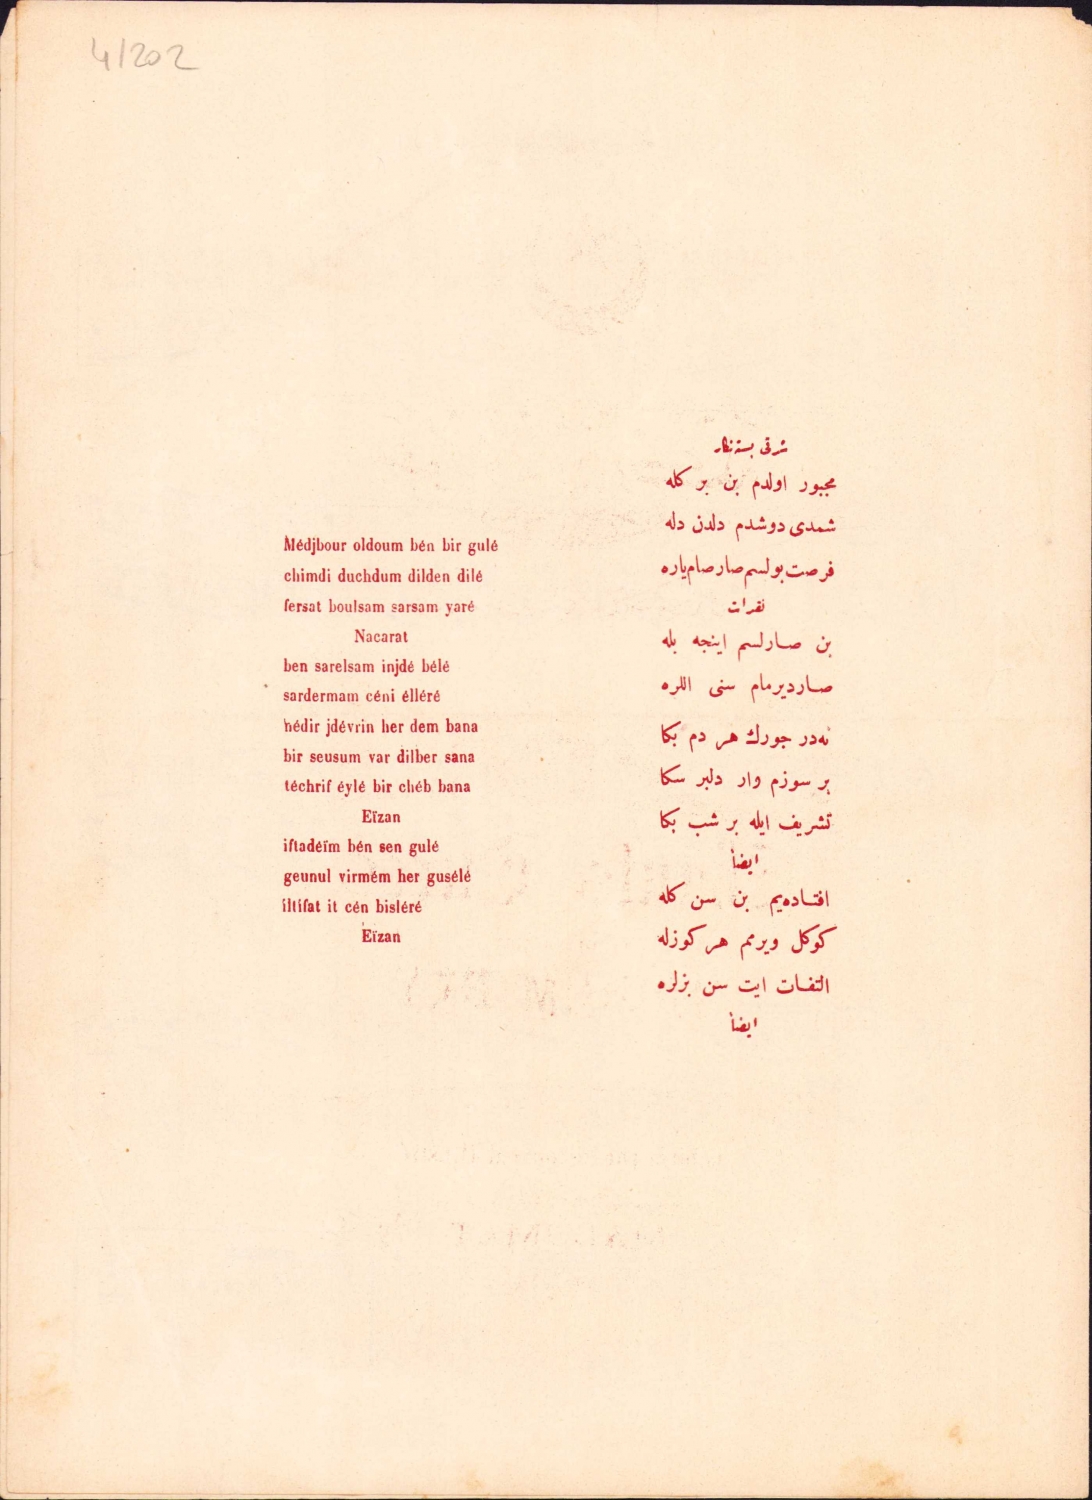 4/202
Médjbour oldoum bén bir gulé
chimdi duchdum dilden dilé
fersat boulsam sarsam yaré
Nacarat
ben sarelsam injdé bélé
sardermam céni élléré
hédir jdévrin her dem bana
bir seusum var dilber sana
téchrif éylé bir chéb bana
Eïzan
iftadéïm bén sen gulé
geunul virmém her gusélé
iltifat it cén bisléré
Eïzan
شرقی بسته‌نكار
مجبور اولدم بن بر كله
شمدی دوشدم دلدن دله
فرصت بولسم صارصام یاره
نقرات
بن صارلسم اینجه بله
صاردیرمام سنی اللره
نه‌در جورك هر دم بكا
بر سوزم وار دلبر سكا
تشریف ایله بر شب بكا
ایضاً
افتاده‌یم بن سن كله
كوكل ویرمم هر كوزله
التفات ایت سن بزلره
ایضاً